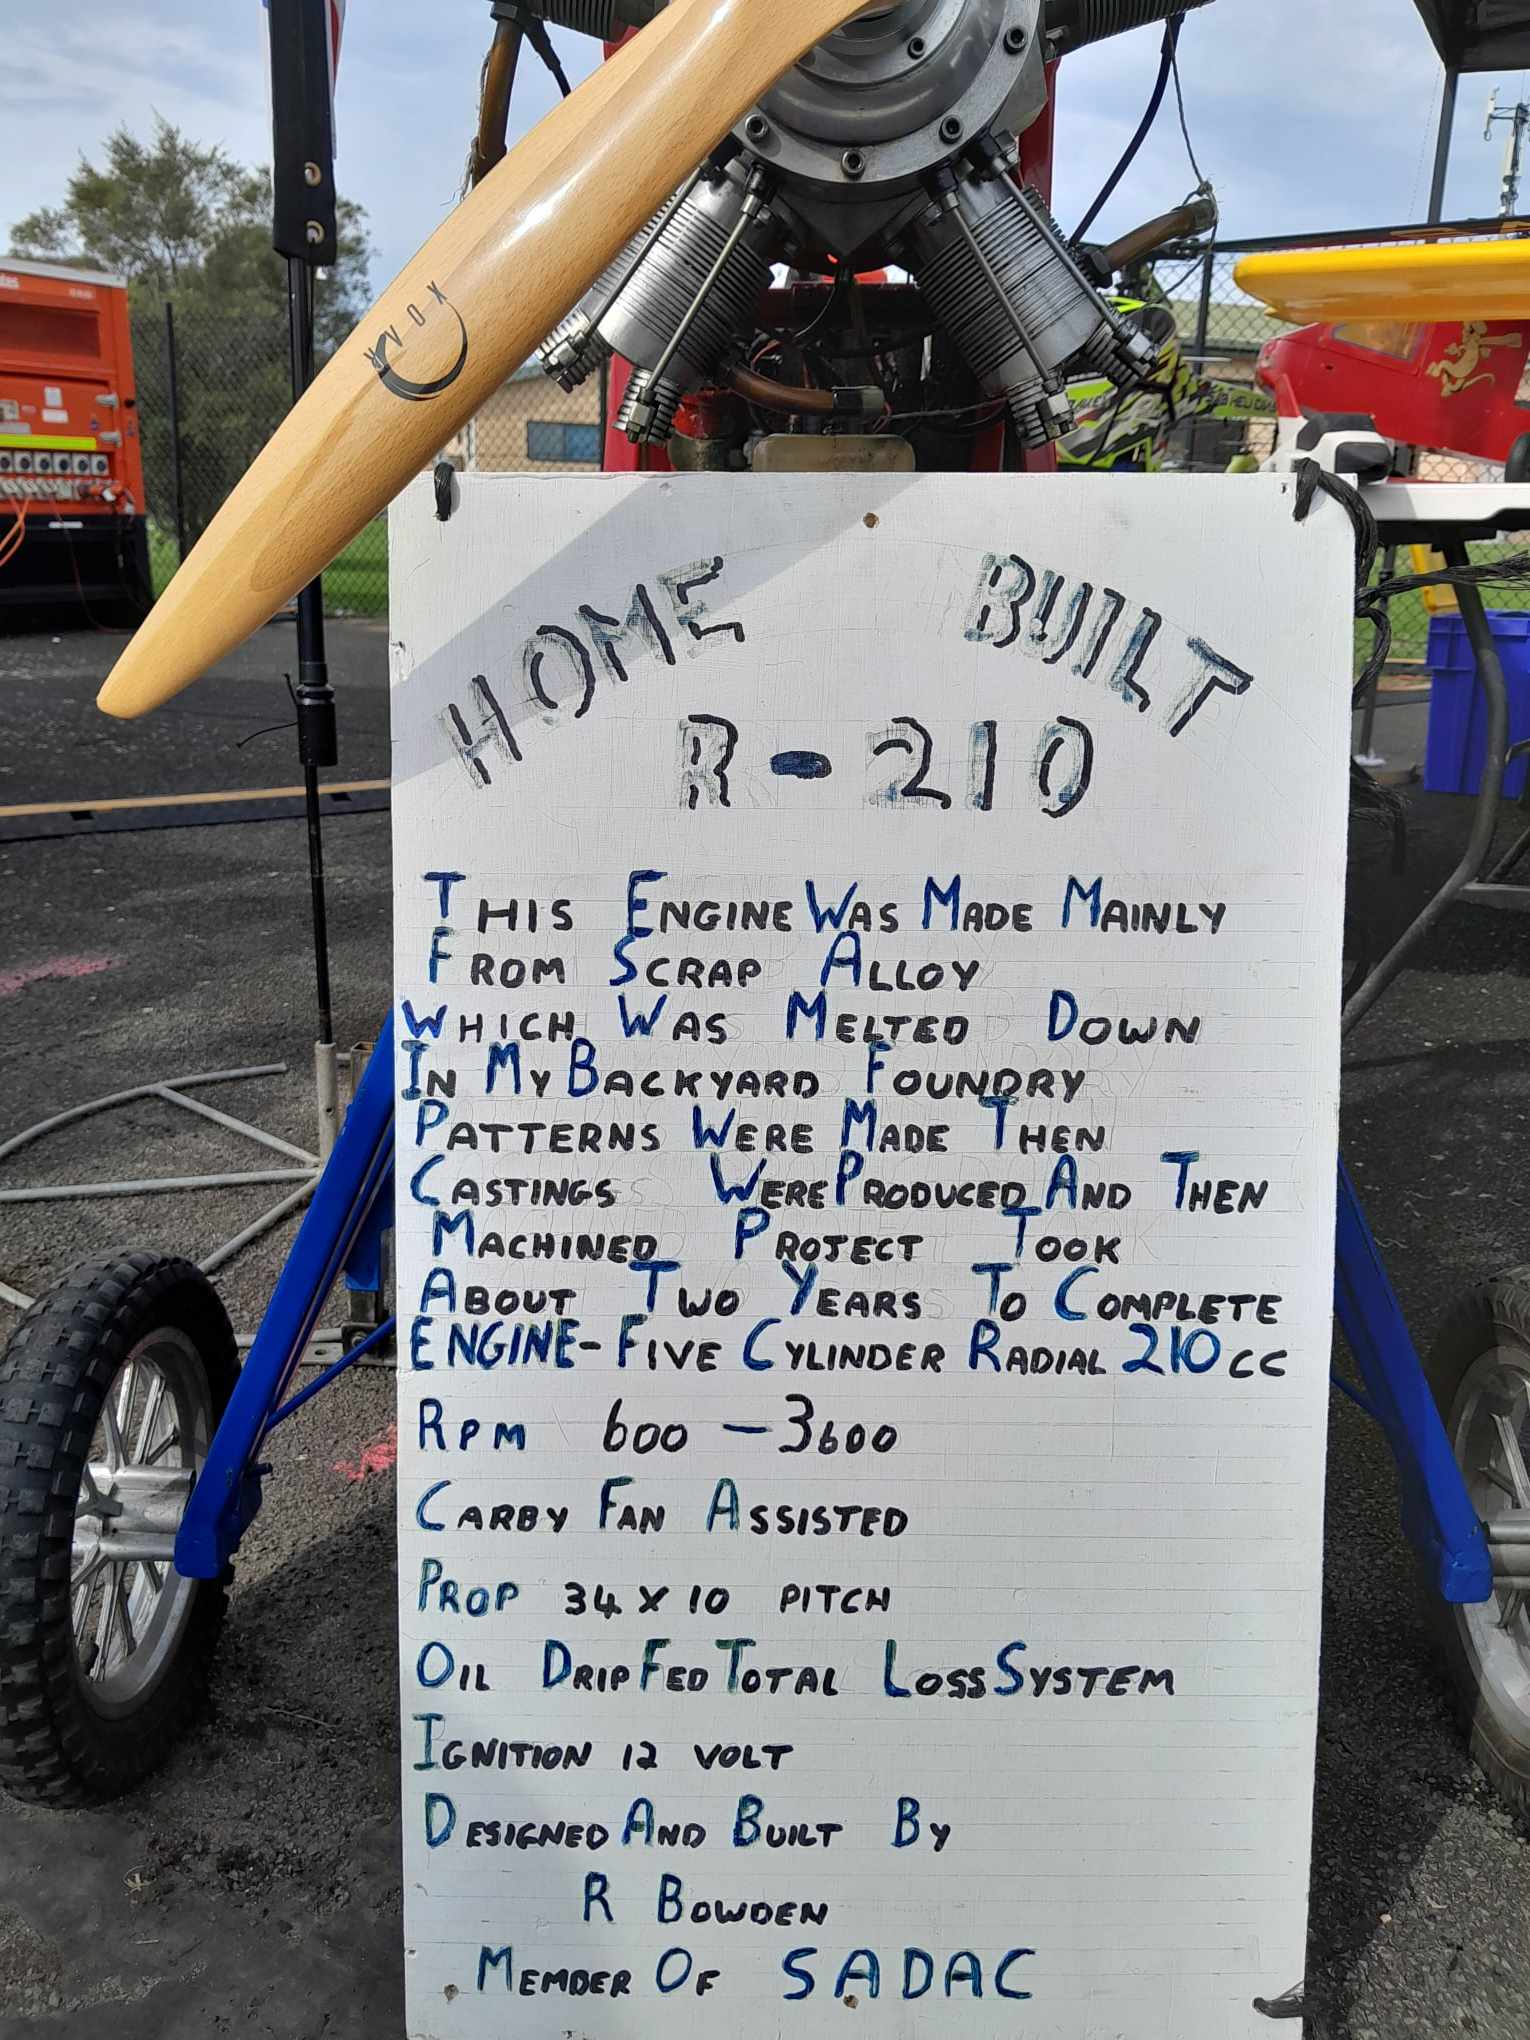 VOX
HOME BUILT
R-210
THIS ENGINE WAS MADE MAINLY
FROM SCRAP ALLOY
WHICH WAS MELTED DOWN
IN MY BACKYARD FOUNDRY
PATTERNS WERE MADE THEN
CASTINGS WERE PRODUCED AND THEN
MACHINED PROJECT TOOK
ABOUT TWO YEARS TO COMPLETE
ENGINE-FIVE CYLINDER RADIAL 210cc
RPM 600 - 3600
CARBY FAN ASSISTED
PROP 34 X 10 PITCH
OIL DRIP FED TOTAL LOSS SYSTEM
IGNITION 12 VOLT
DESIGNED AND BUILT BY
R BOWDEN
MEMBER OF SADAC